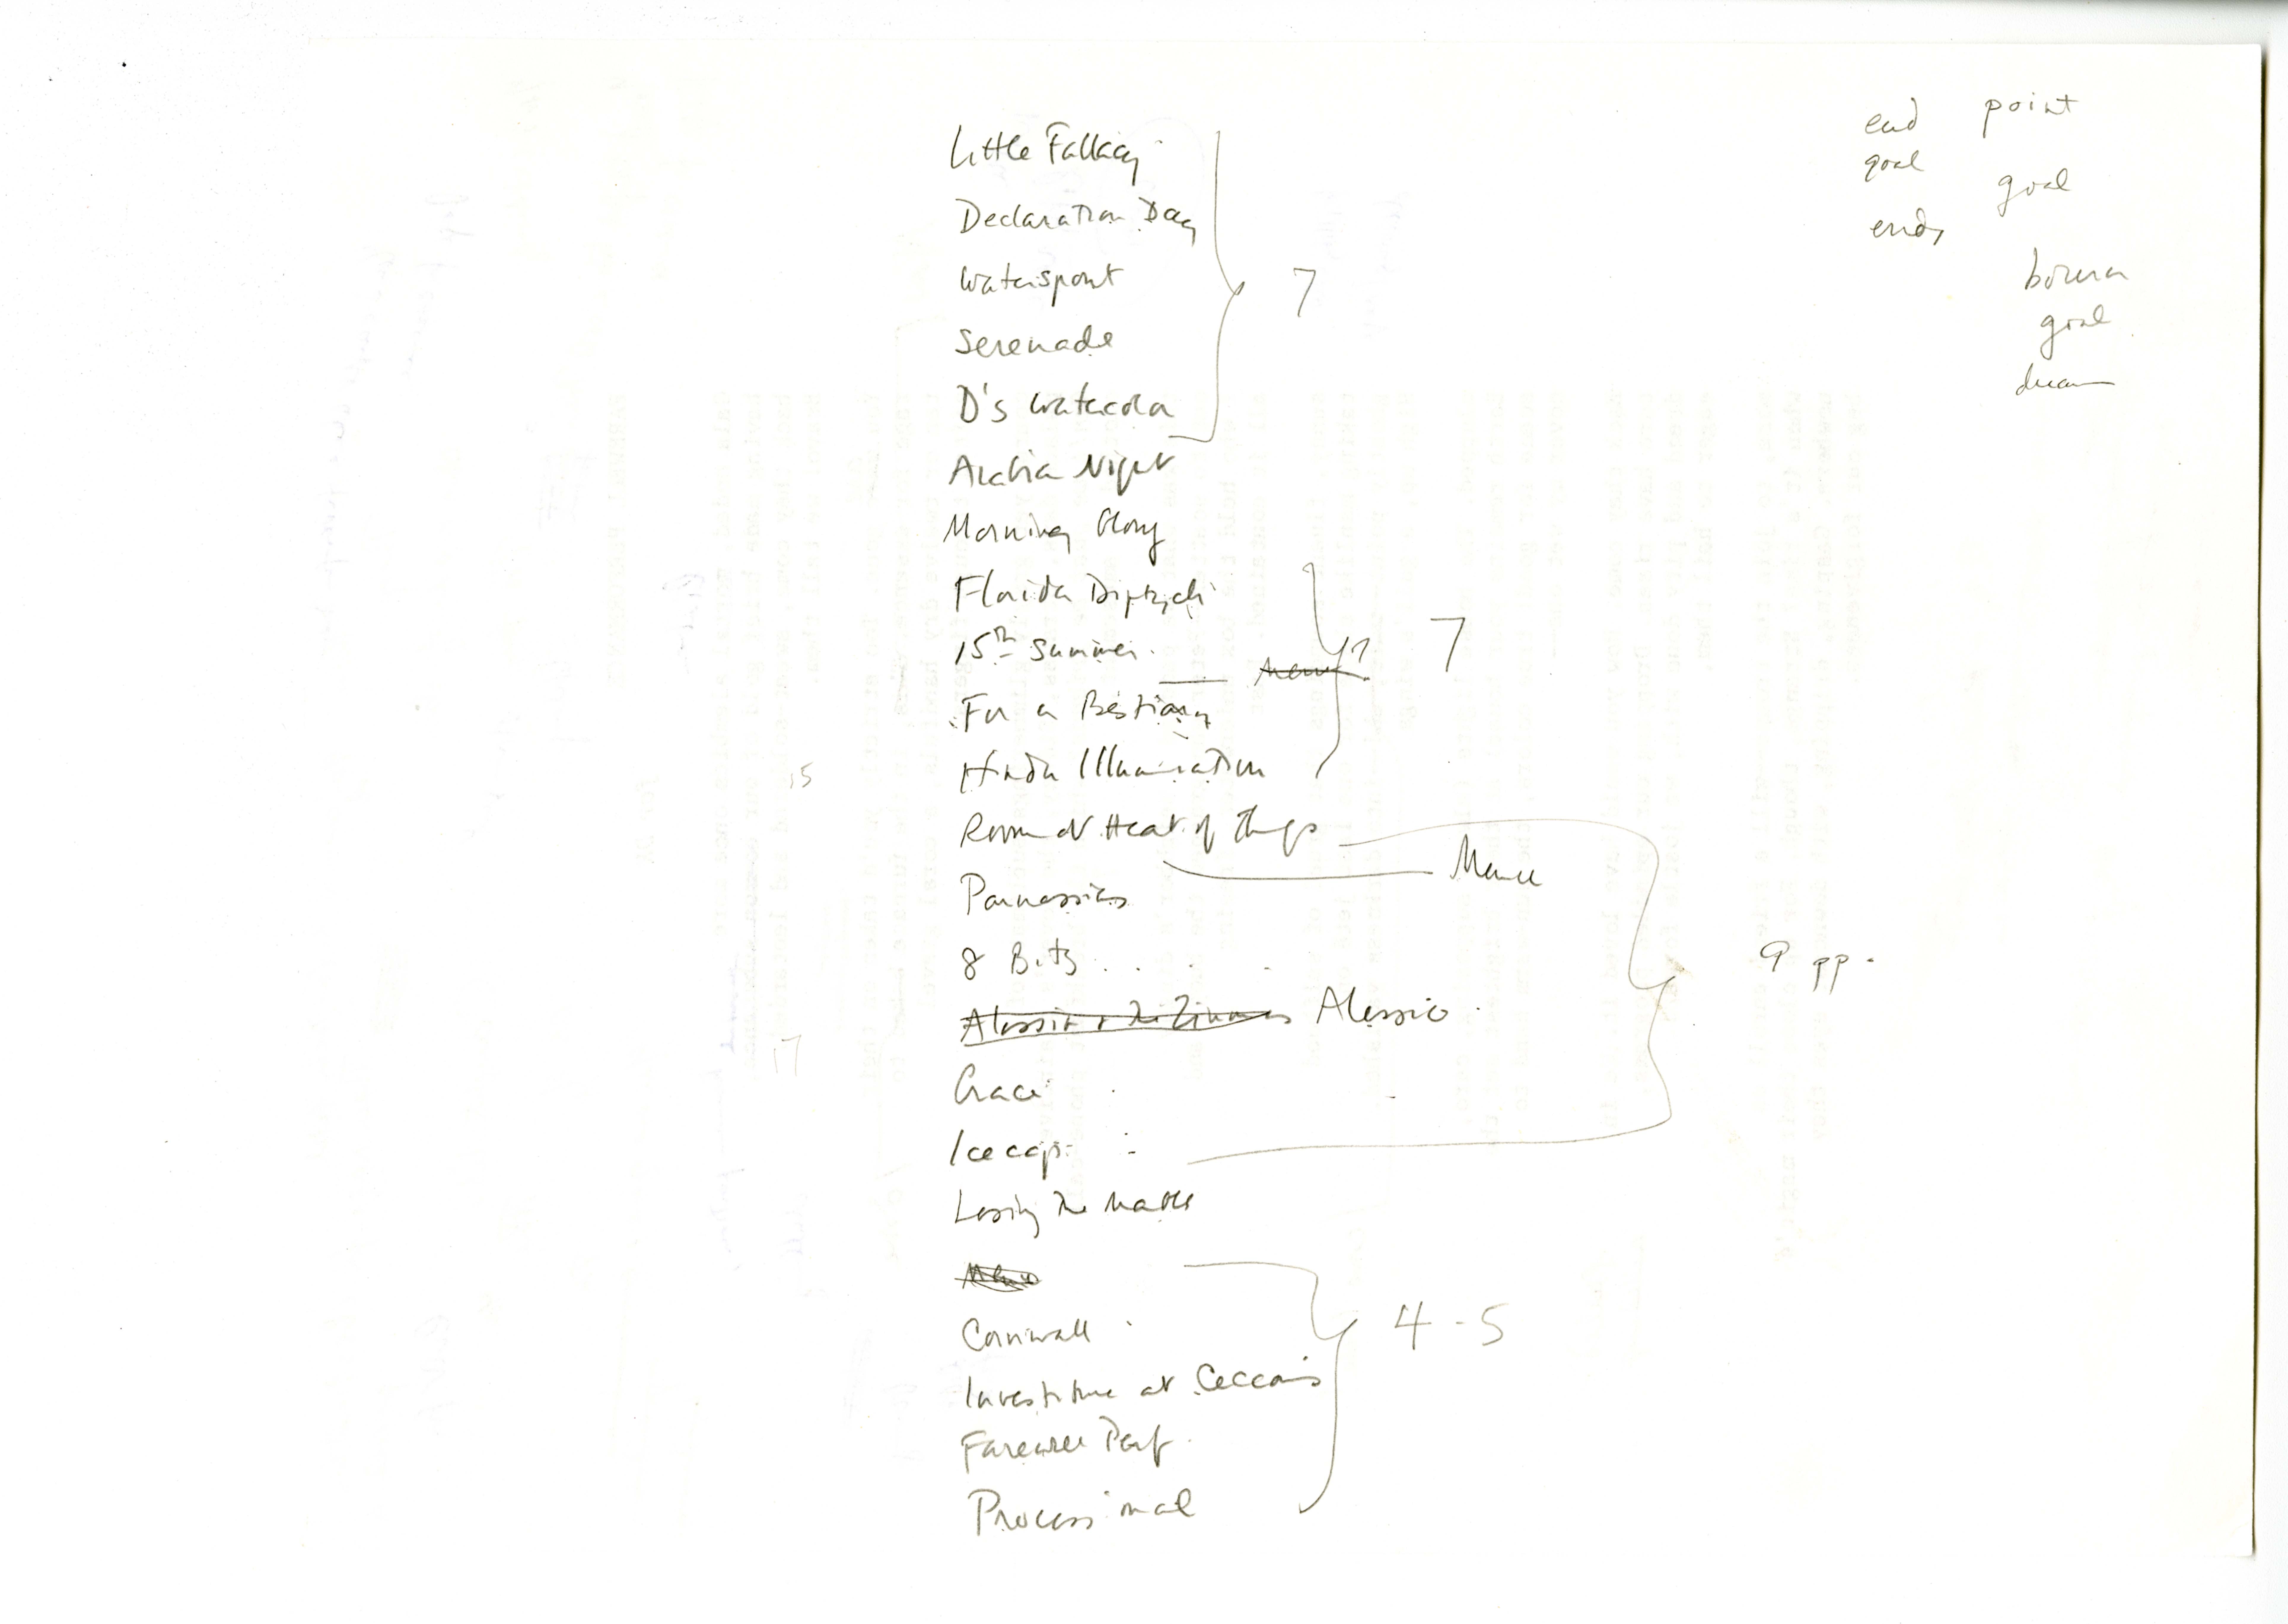 Little Fallacy
Declaration Day
Waterspout
Serenade
D's Watercolor
7
Arabian Night
Morning Glory
Florida Diptych
15th Summer
For a Bestiary
Hindu Illumination
7
15
Room at Heart of Things
Parnassians
8 Bits
Alessio & The Zinnias Alessio
9 pp.
17
Grace
Ice cap
Losing the Marbles
Cornwall
Investiture at Cecconi's
Farewell Perf.
Processional
4-5
end point
goal goal
ends
bourn
goal
dream